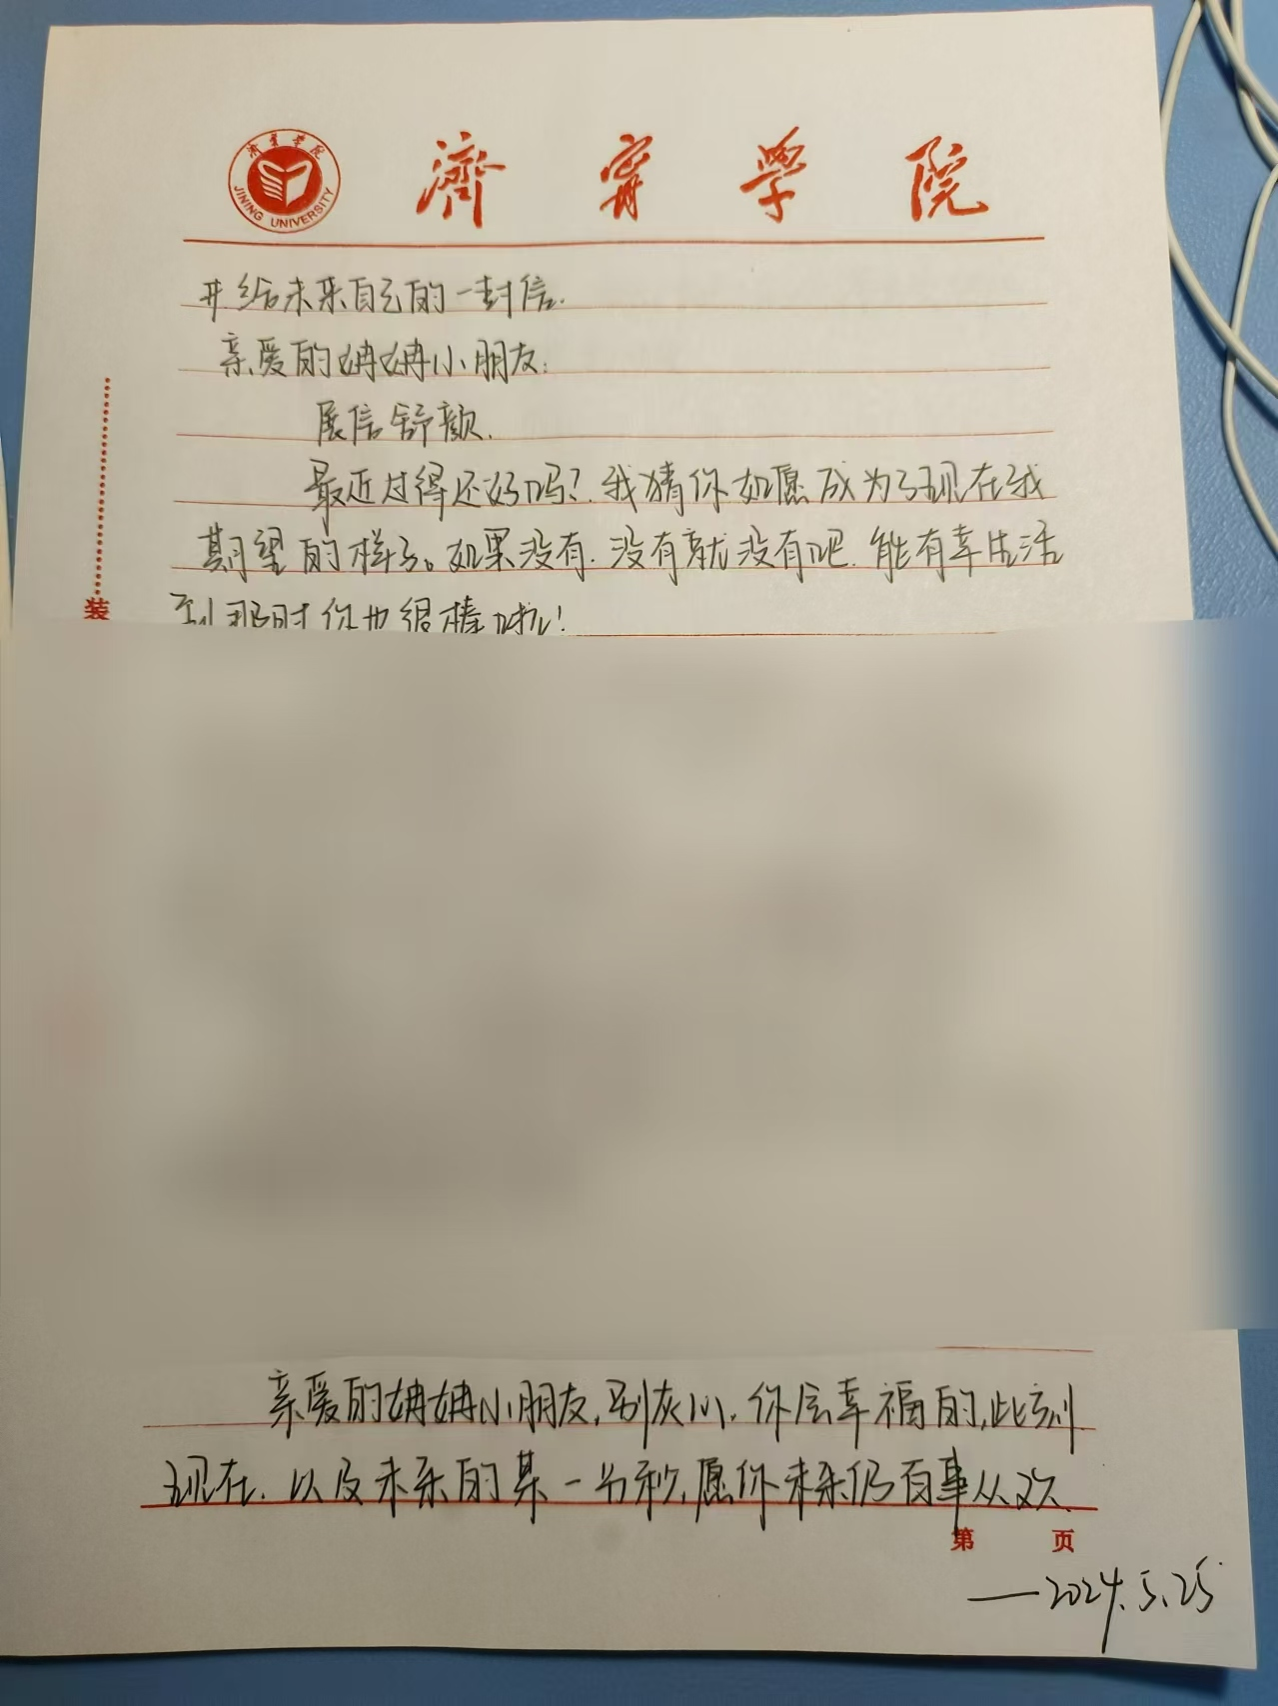 濟寧學院
JINING UNIVERSITY
给未来自己的一封信.
亲爱的姌姌小朋友:
展信舒颜.
最近过得还好吗?我猜你如愿成为了现在我
期望的样子。如果没有.没有就没有吧.能有幸生活
到那时你也很棒啦!
装
亲爱的姌姌小朋友,别灰心.你会幸福的,此刻
现在.以及未来的某一分秒,愿你未来仍百事从欢.
第 页
——2024.5.25